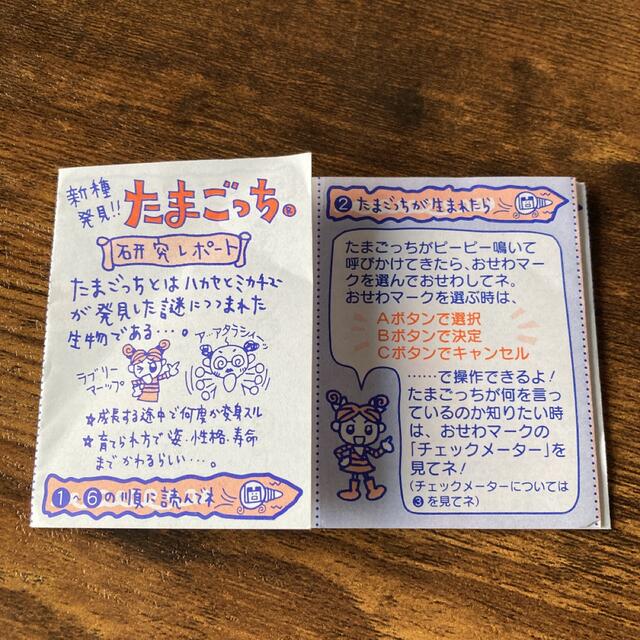 新種
発見!!
たまごっち®
研究レポート
たまごっちとはハカセとミカチュー
が発見した謎につつまれた
生物である…。
ア…アタラシイ〜ン
ラブリー
マーップ♪
★成長する途中で何度か変身スル
★育てられ方で姿、性格、寿命
までかわるらしい…。
①〜⑥の順に読んでネ
②たまごっちが生まれたら
たまごっちがピーピー鳴いて
呼びかけてきたら、おせわマー
クを選んでおせわしてネ。
おせわマークを選ぶ時は、
Aボタンで選択
Bボタンで決定
Cボタンでキャンセル
……で操作できるよ!
たまごっちが何を言っ
ているのか知りたい時
は、おせわマークの
「チェックメーター」を
見てネ!
(チェックメーターについては
❸を見てネ)